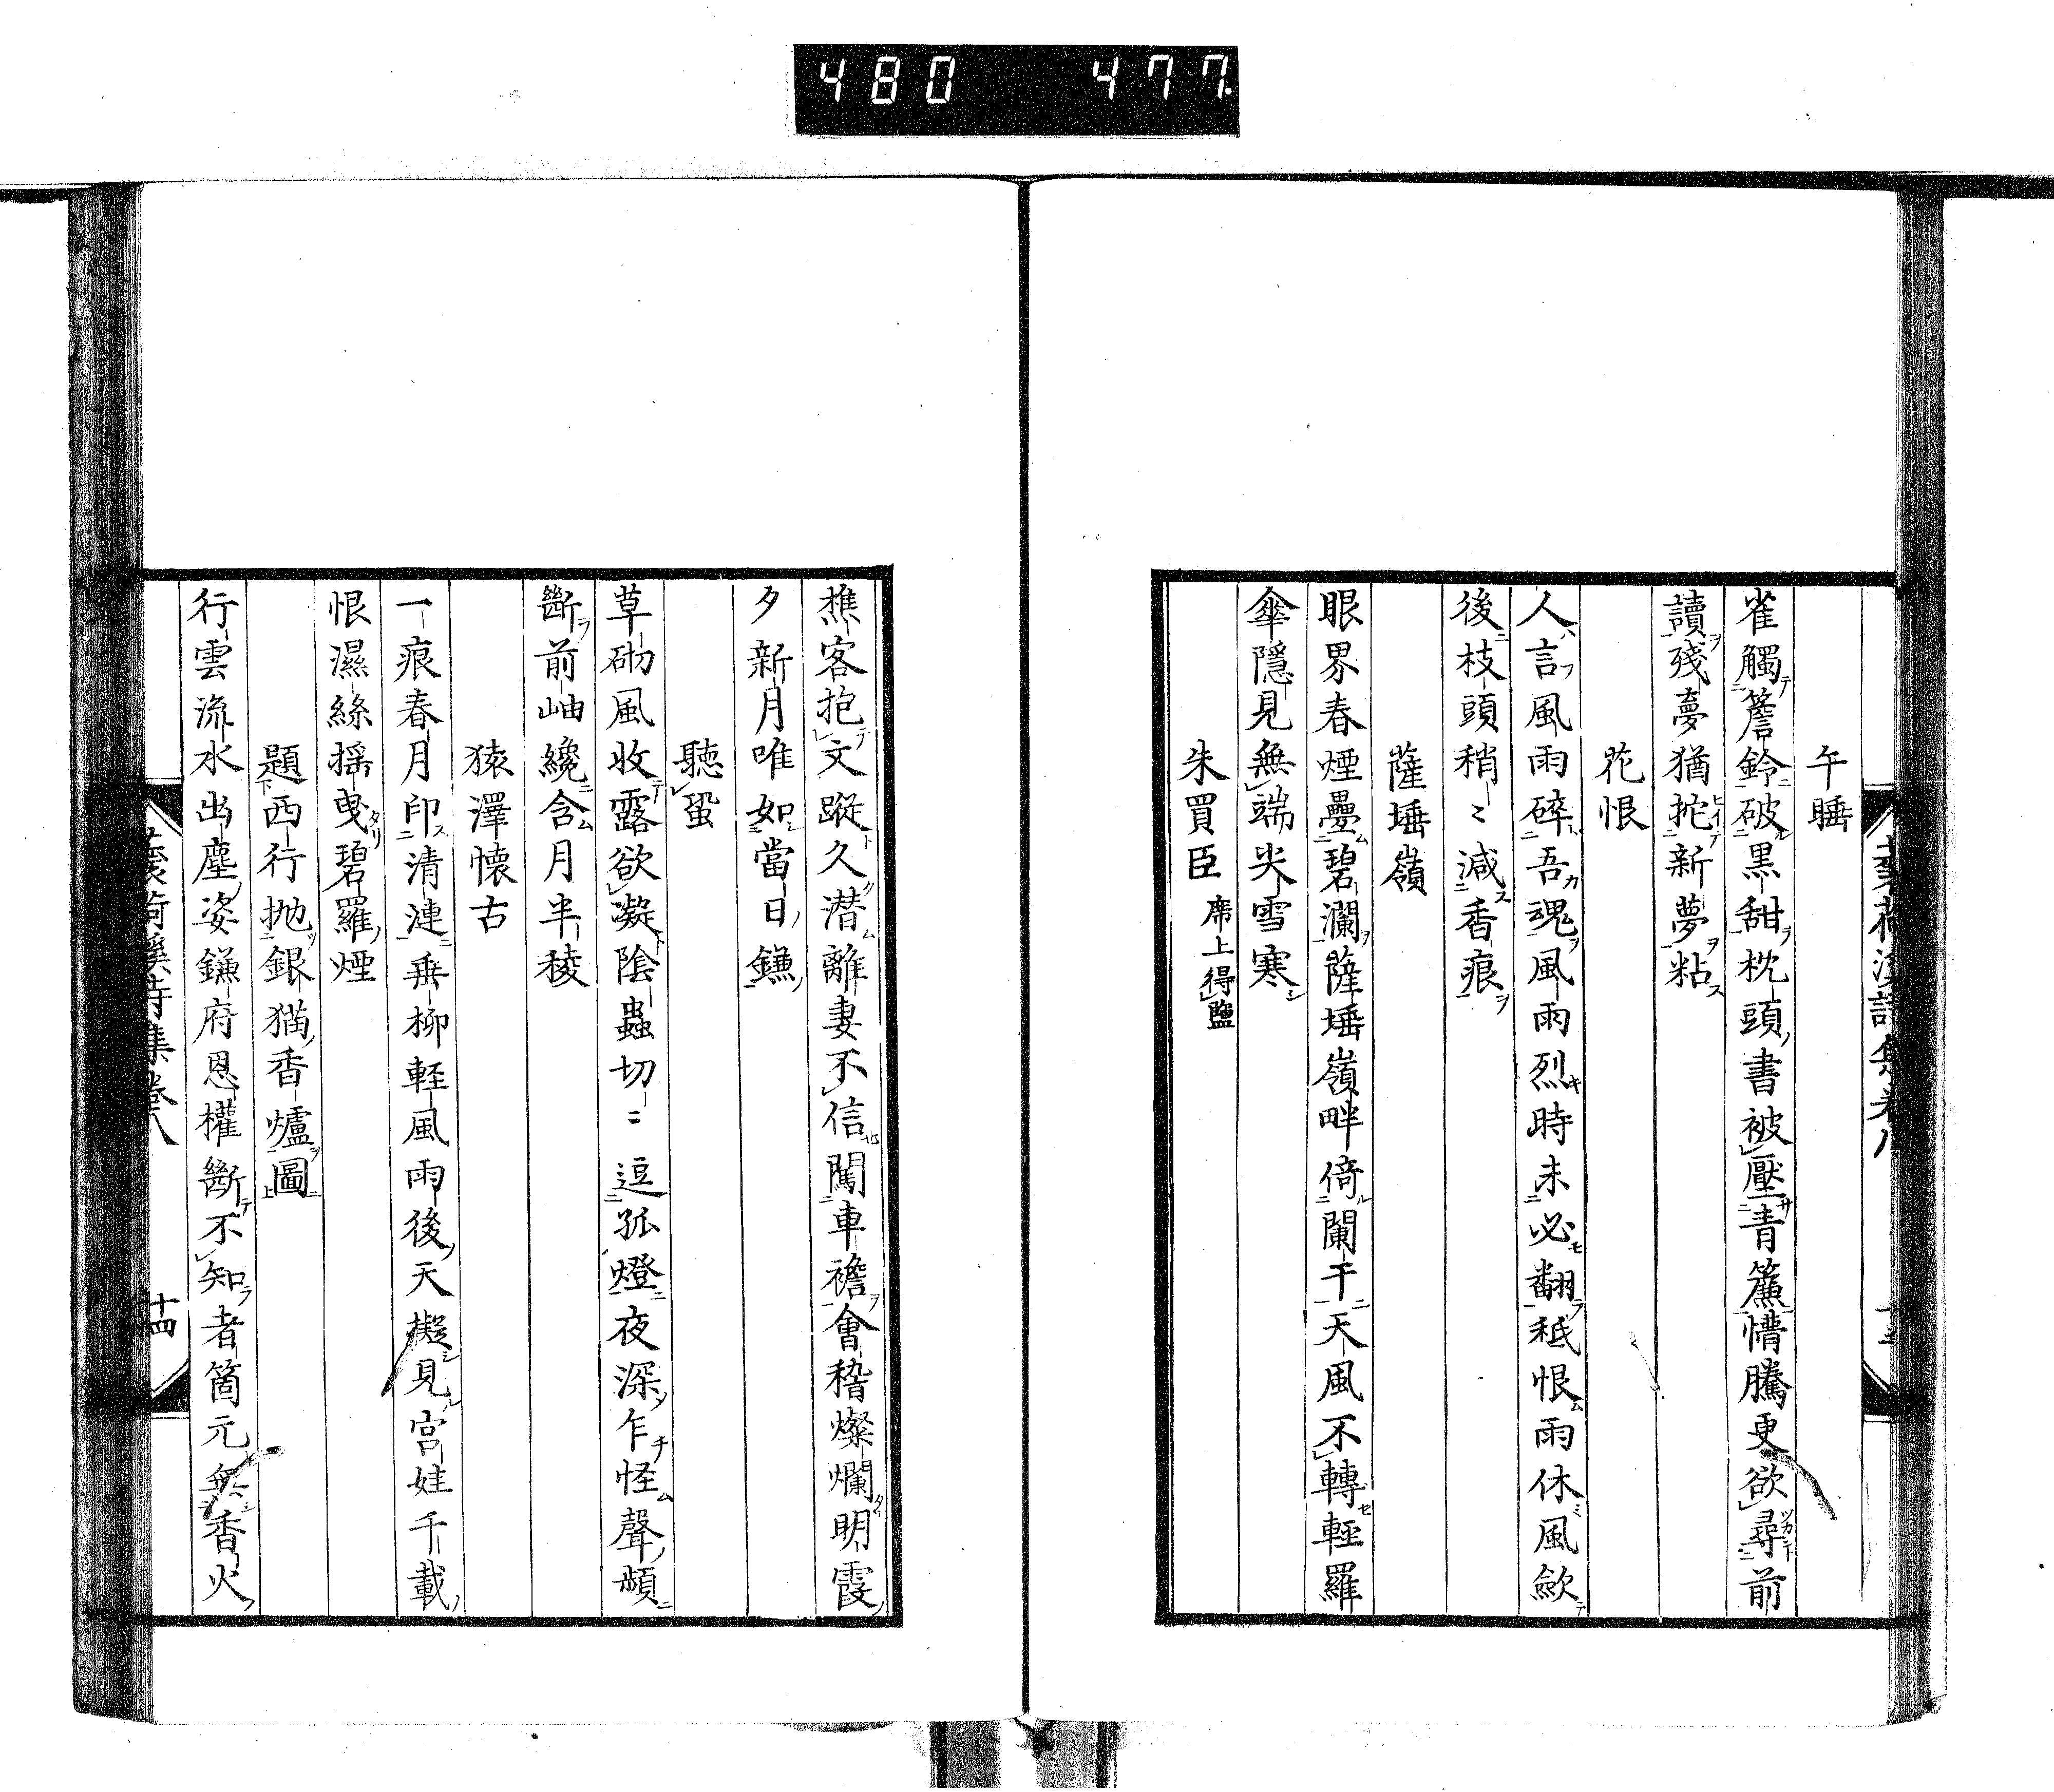 480 477.
午睡
雀觸簷鈴破黒甜枕頭書被壓青簾懵騰更欲尋前
讀殘夢猶拕新夢粘
花恨
人言風雨碎吾魂風雨烈時未必翻秖恨雨休風歛
後枝頭稍〻減香痕
薩埵嶺
眼界春煙疊碧瀾薩埵嶺畔倚闌干天風不轉輕羅
傘隱見無端尖雪寒
朱買臣 席上得鹽
樵客抱文蹤久潜離妻不信闖車襜會稽燦爛明霞
夕新月唯如當日鎌
聽蛩
草砌風收露欲凝陰蟲切〻逗孤燈夜深乍怪聲頻
斷前岫纔含月半稜
猿澤懷古
一痕春月印清漣垂柳輕風雨後天擬見宮娃千載
恨濕絲揺曳碧羅煙
題西行抛銀猫香爐圖
行雲流水出塵姿鎌府恩權斷不知者箇元無香火
十四